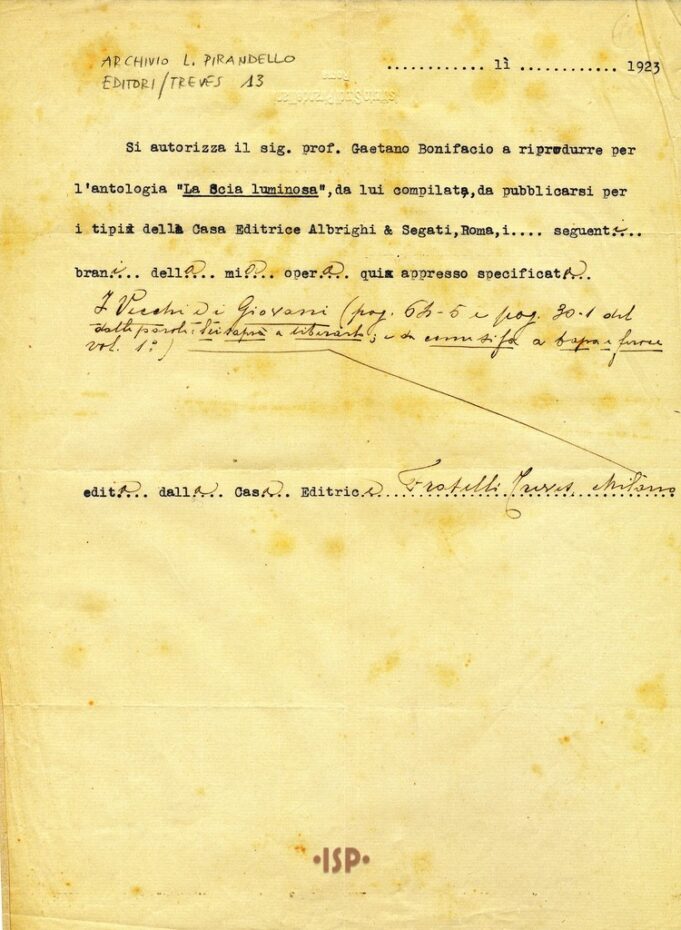 ARCHIVIO L. PIRANDELLO
EDITORI/TREVES 13
............ lì ............ 1923
Si autorizza il sig. prof. Gaetano Bonifacio a riprodurre per
l'antologia "La Scia luminosa",da lui compilata,da pubblicarsi per
i tipi della Casa Editrice Albrighi & Segati,Roma,i.... seguenti...
brani... della... mia... opera... qui appresso specificata...
I Vecchi e i Giovani (pag. 64-5 e pag. 30-1 del
dalle parole: a liberarti; e da come si fa a
vol. 1º)
edita... dalla... Casa.. Editrice Fratelli Treves Milano
•ISP•